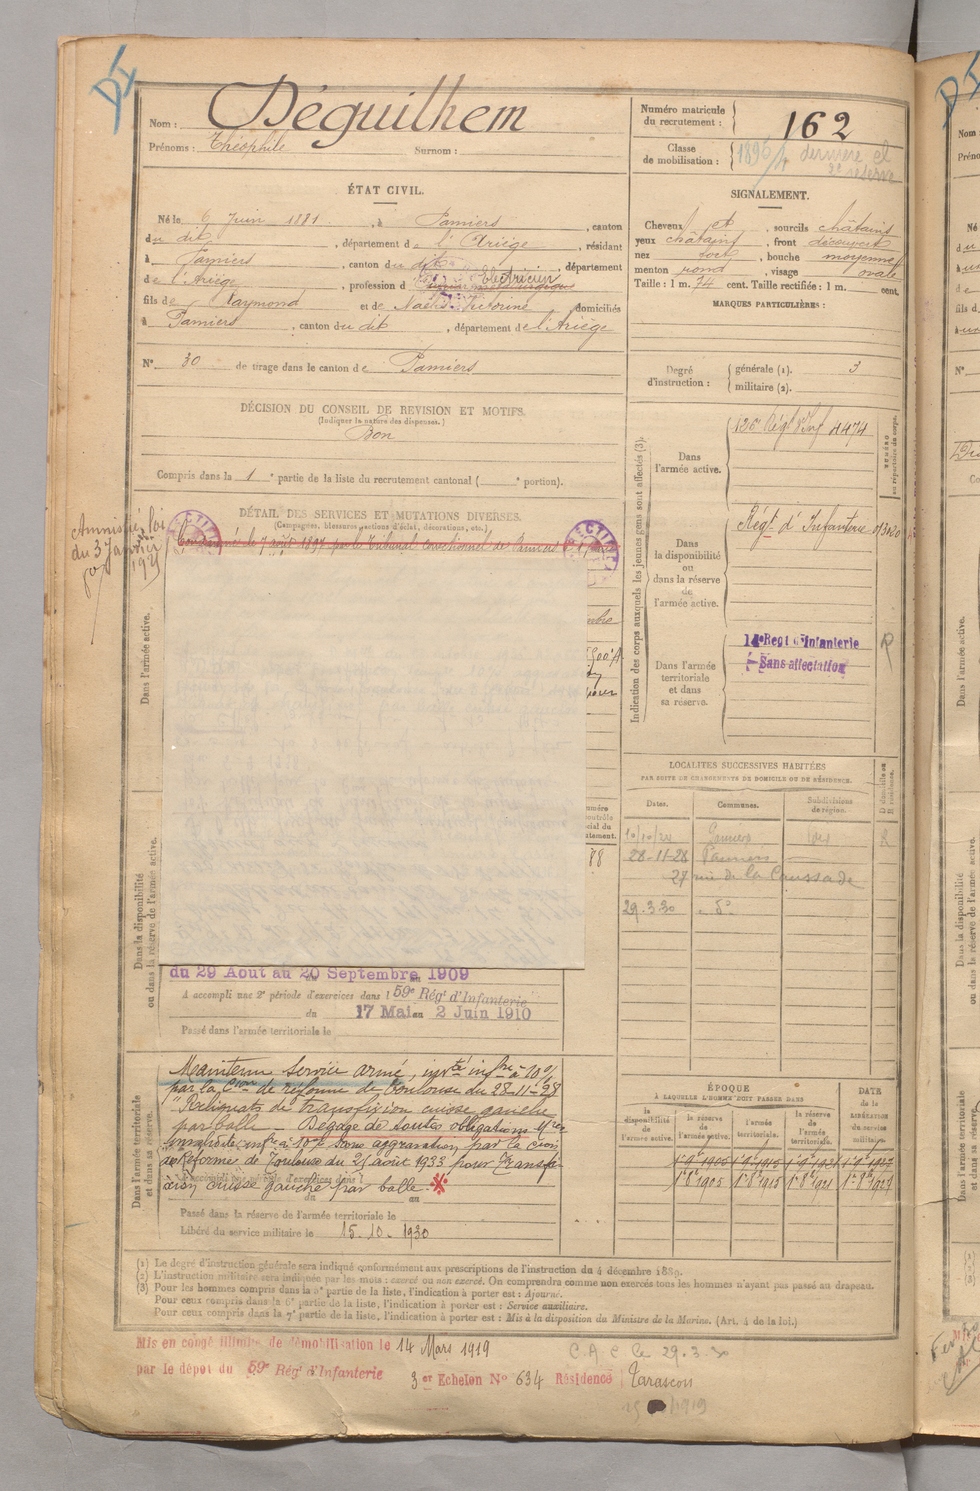 Nom : Déguilhem
Prénoms : Théophile Surnom :
Numéro matricule du recrutement : 162
Classe de mobilisation : 1896/4 dernière et
2e réserve
ÉTAT CIVIL.
Né le 6 Juin 1881, à Pamiers, canton
du dit, département de l'Ariège, résidant
à Pamiers, canton du dit, département
de l'Ariège, profession d Electricien
fils de Raymond et de Naels Victorine domiciliés
à Pamiers, canton du dit, département de l'Ariège
N° 30 de tirage dans le canton de Pamiers
DÉCISION DU CONSEIL DE REVISION ET MOTIFS.
(Indiquer la nature des dispenses.)
Bon
Compris dans la 1e partie de la liste du recrutement cantonal ( e portion).
SIGNALEMENT.
Cheveux et, sourcils châtains
yeux châtains, front découvert
nez fort, bouche moyenne
menton rond, visage ovale
Taille : 1 m. 74 cent. Taille rectifiée : 1 m. cent.
MARQUES PARTICULIÈRES :
Degré d'instruction : générale (1). 3
militaire (2).
DÉTAIL DES SERVICES ET MUTATIONS DIVERSES.
(Campagnes, blessures, actions d'éclat, décorations, etc.)
Condamné le 7 août 1897 par le Tribunal correctionnel de Pamiers
Amnistié loi
du 3 Janvier
1925
Dans l'armée active.
Dans la disponibilité
ou dans la réserve de l'armée active.
du 29 Aout au 20 Septembre 1909
A accompli une 2e période d'exercices dans l 59e Régt d'Infanterie
du 17 Mai au 2 Juin 1910
Passé dans l'armée territoriale le
Dans l'armée territoriale
et dans sa réserve.
Maintenu service armé, invté infre à 10%
par la Cion de réforme de Toulouse du 28-11-28
"Reliquats de transfixion cuisse gauche
par balle - Dégagé de toutes obligations Mres
invalidité infre à 10% sans aggravation par la Cion
de Réforme de Toulouse du 21 août 1933 pour transfi-
xion cuisse gauche par balle.
A accompli une période d'exercices dans l
du au
Passé dans la réserve de l'armée territoriale le
Libéré du service militaire le 15-10-1930
Indication des corps auxquels les jeunes gens sont affectés (3).
Dans l'armée active. 126e Régt d'Inf 4474
NUMÉRO au répertoire du corps.
Dans la disponibilité ou dans la réserve de l'armée active.
Régt d'Infanterie
Dans l'armée territoriale et dans sa réserve.
Régt d'Infanterie
Sans affectation
LOCALITÉS SUCCESSIVES HABITÉES
PAR SUITE DE CHANGEMENTS DE DOMICILE OU DE RÉSIDENCE.
Dates. Communes. Subdivisions de région. D domicile ou R résidence.
10/10/20 Pamiers
28-11-28 Pamiers
27 rue de la Caussade
29.3.30 do
ÉPOQUE
À LAQUELLE L'HOMME DOIT PASSER DANS
la disponibilité de l'armée active. la réserve de l'armée active. l'armée territoriale. la réserve de l'armée territoriale.
DATE de la LIBÉRATION du service militaire.
1-9-1905 1-9-1915 1-9-1921 1-9-1927
1-8-1905 1-8-1915 1-8-1921 1-8-1927
(1) Le degré d'instruction générale sera indiqué conformément aux prescriptions de l'instruction du 4 décembre 1889.
(2) L'instruction militaire sera indiquée par les mots : exercé ou non exercé. On comprendra comme non exercés tous les hommes n'ayant pas passé au drapeau.
(3) Pour les hommes compris dans la 5e partie de la liste, l'indication à porter est : Ajourné.
Pour ceux compris dans la 6e partie de la liste, l'indication à porter est : Service auxiliaire.
Pour ceux compris dans la 7e partie de la liste, l'indication à porter est : Mis à la disposition du Ministre de la Marine. (Art. 4 de la loi.)
Mis en congé illimité de démobilisation le 14 Mars 1919
par le dépot du 59e Régt d'Infanterie
3er Echelon No 634 Résidence Tarascon
C.A.C le 29.3.30